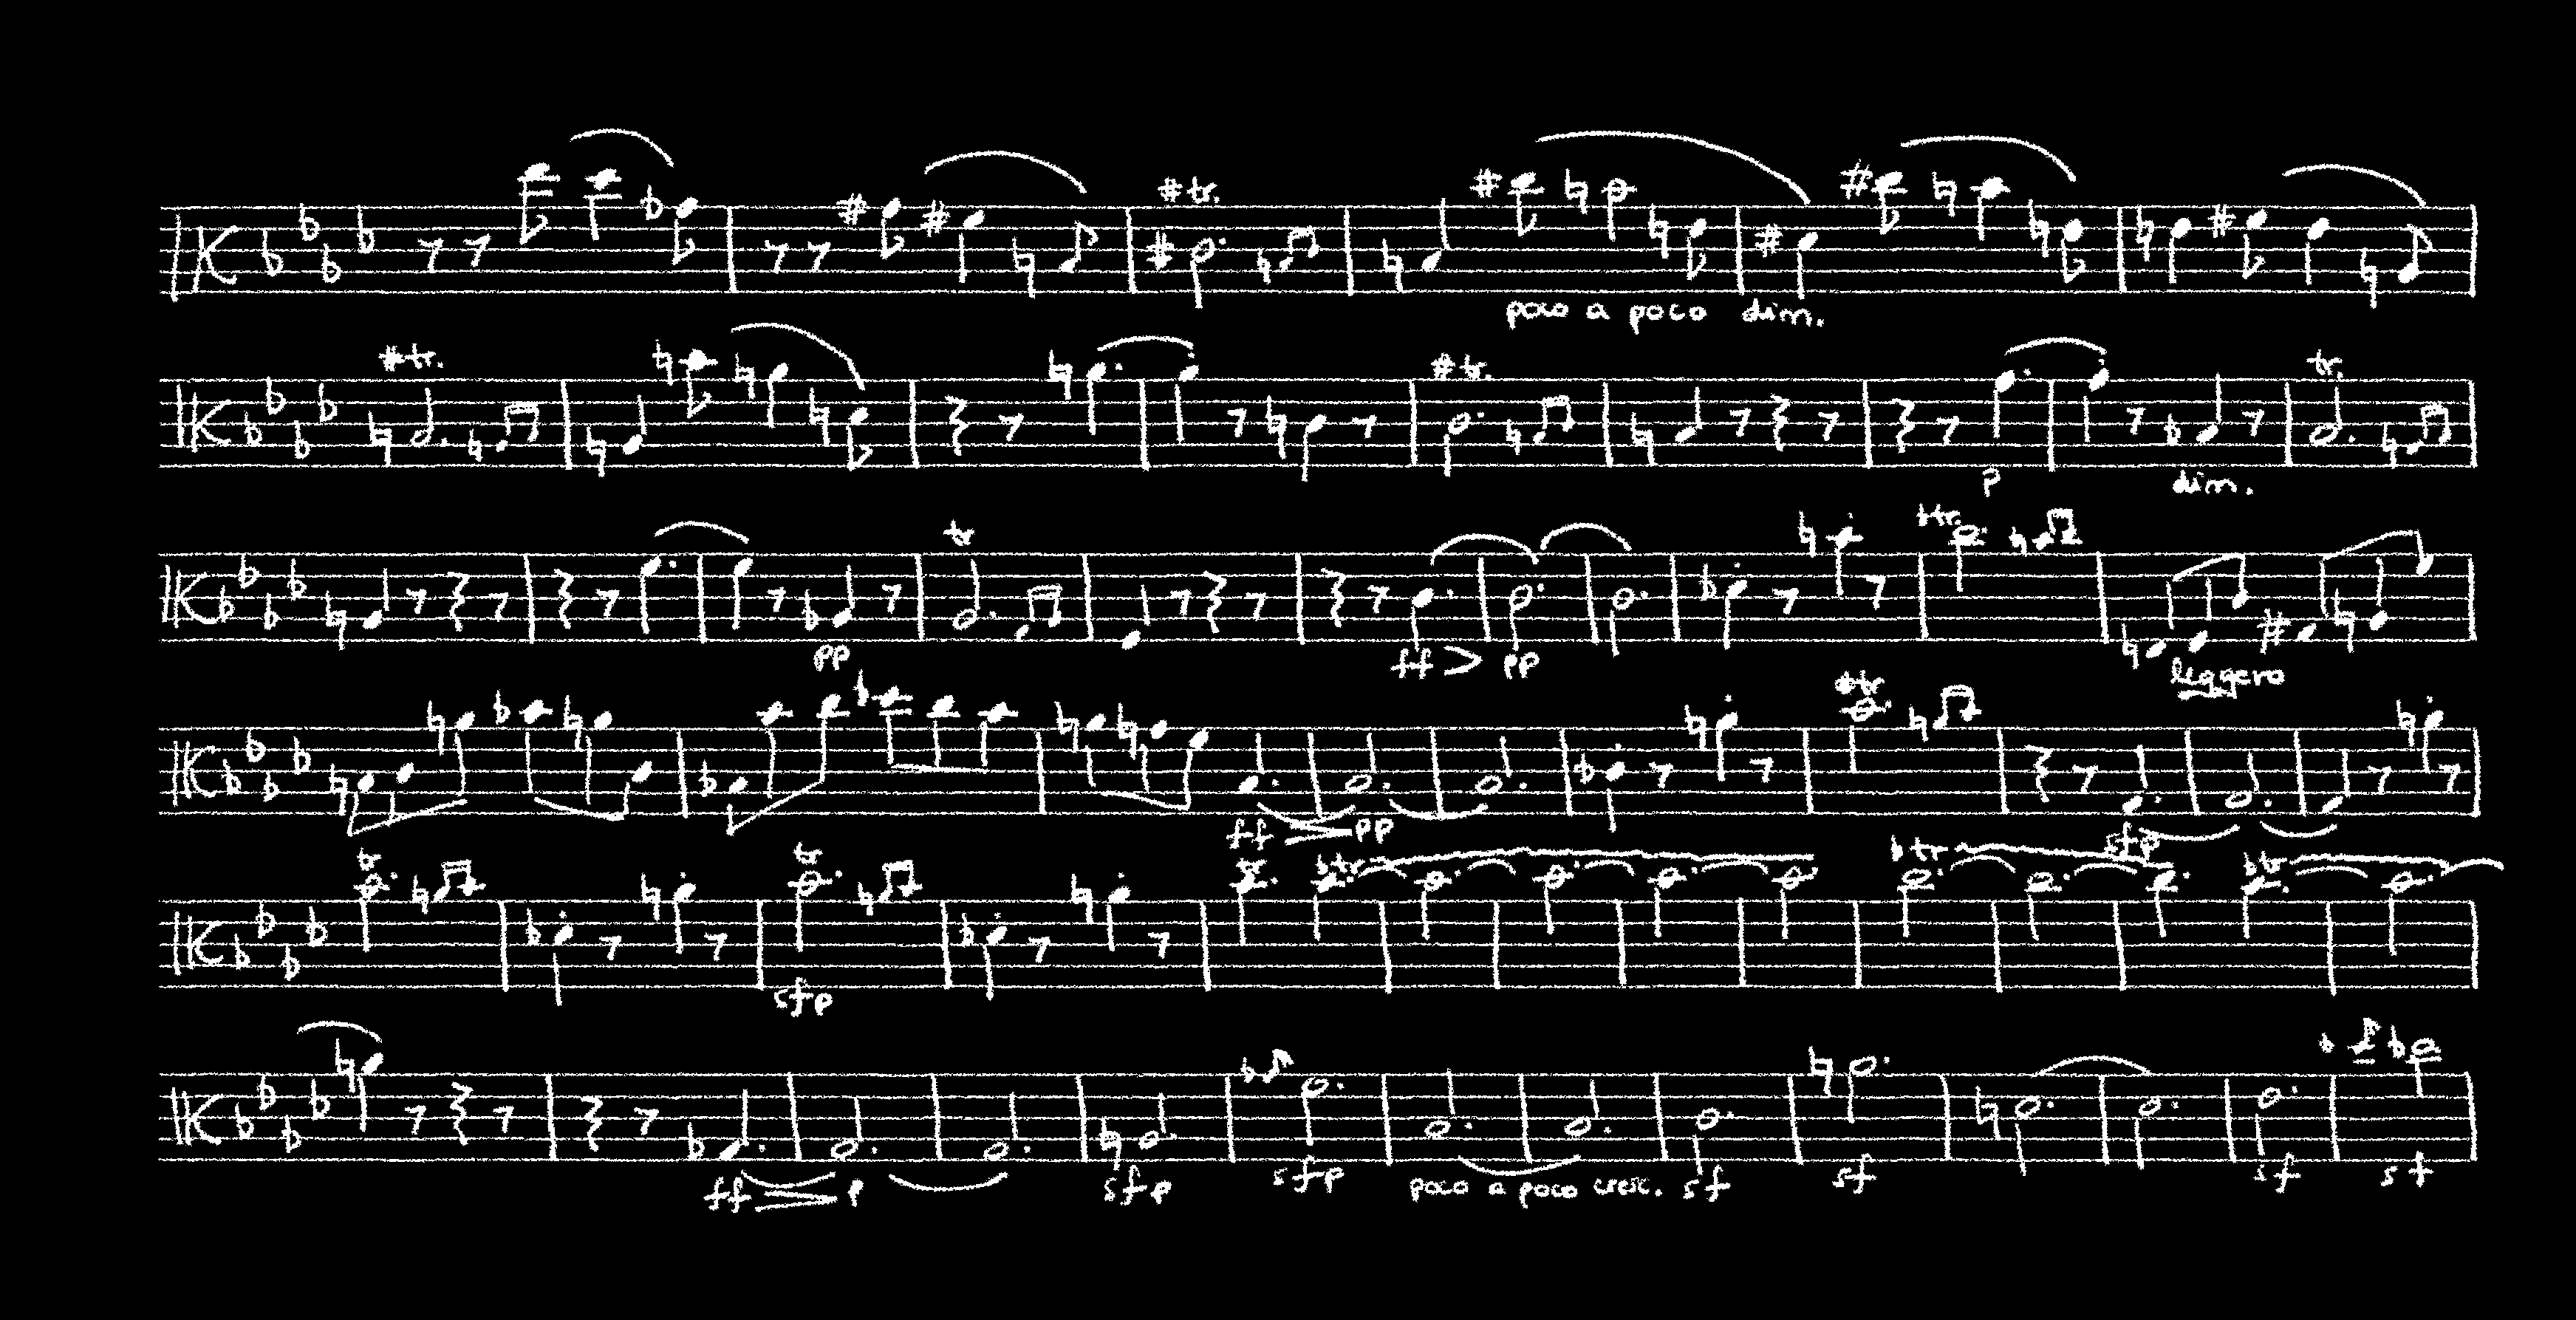 tr.
poco a poco dim.
tr.
tr.
tr.
p
dim.
tr
tr.
pp
ff
pp
leggero
tr
ff
pp
sfp
tr
tr
tr
tr
tr
tr
sfp
ff
p
sfp
sfp
poco a poco cresc.
sf
sf
sf
sf